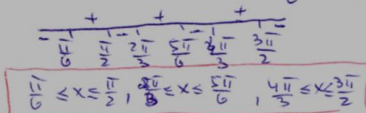 + + +
- - - -
π/6 π/2 2π/3 5π/6 4π/3 3π/2
π/6 ≤ x ≤ π/2 , 2π/3 ≤ x ≤ 5π/6 , 4π/3 ≤ x ≤ 3π/2